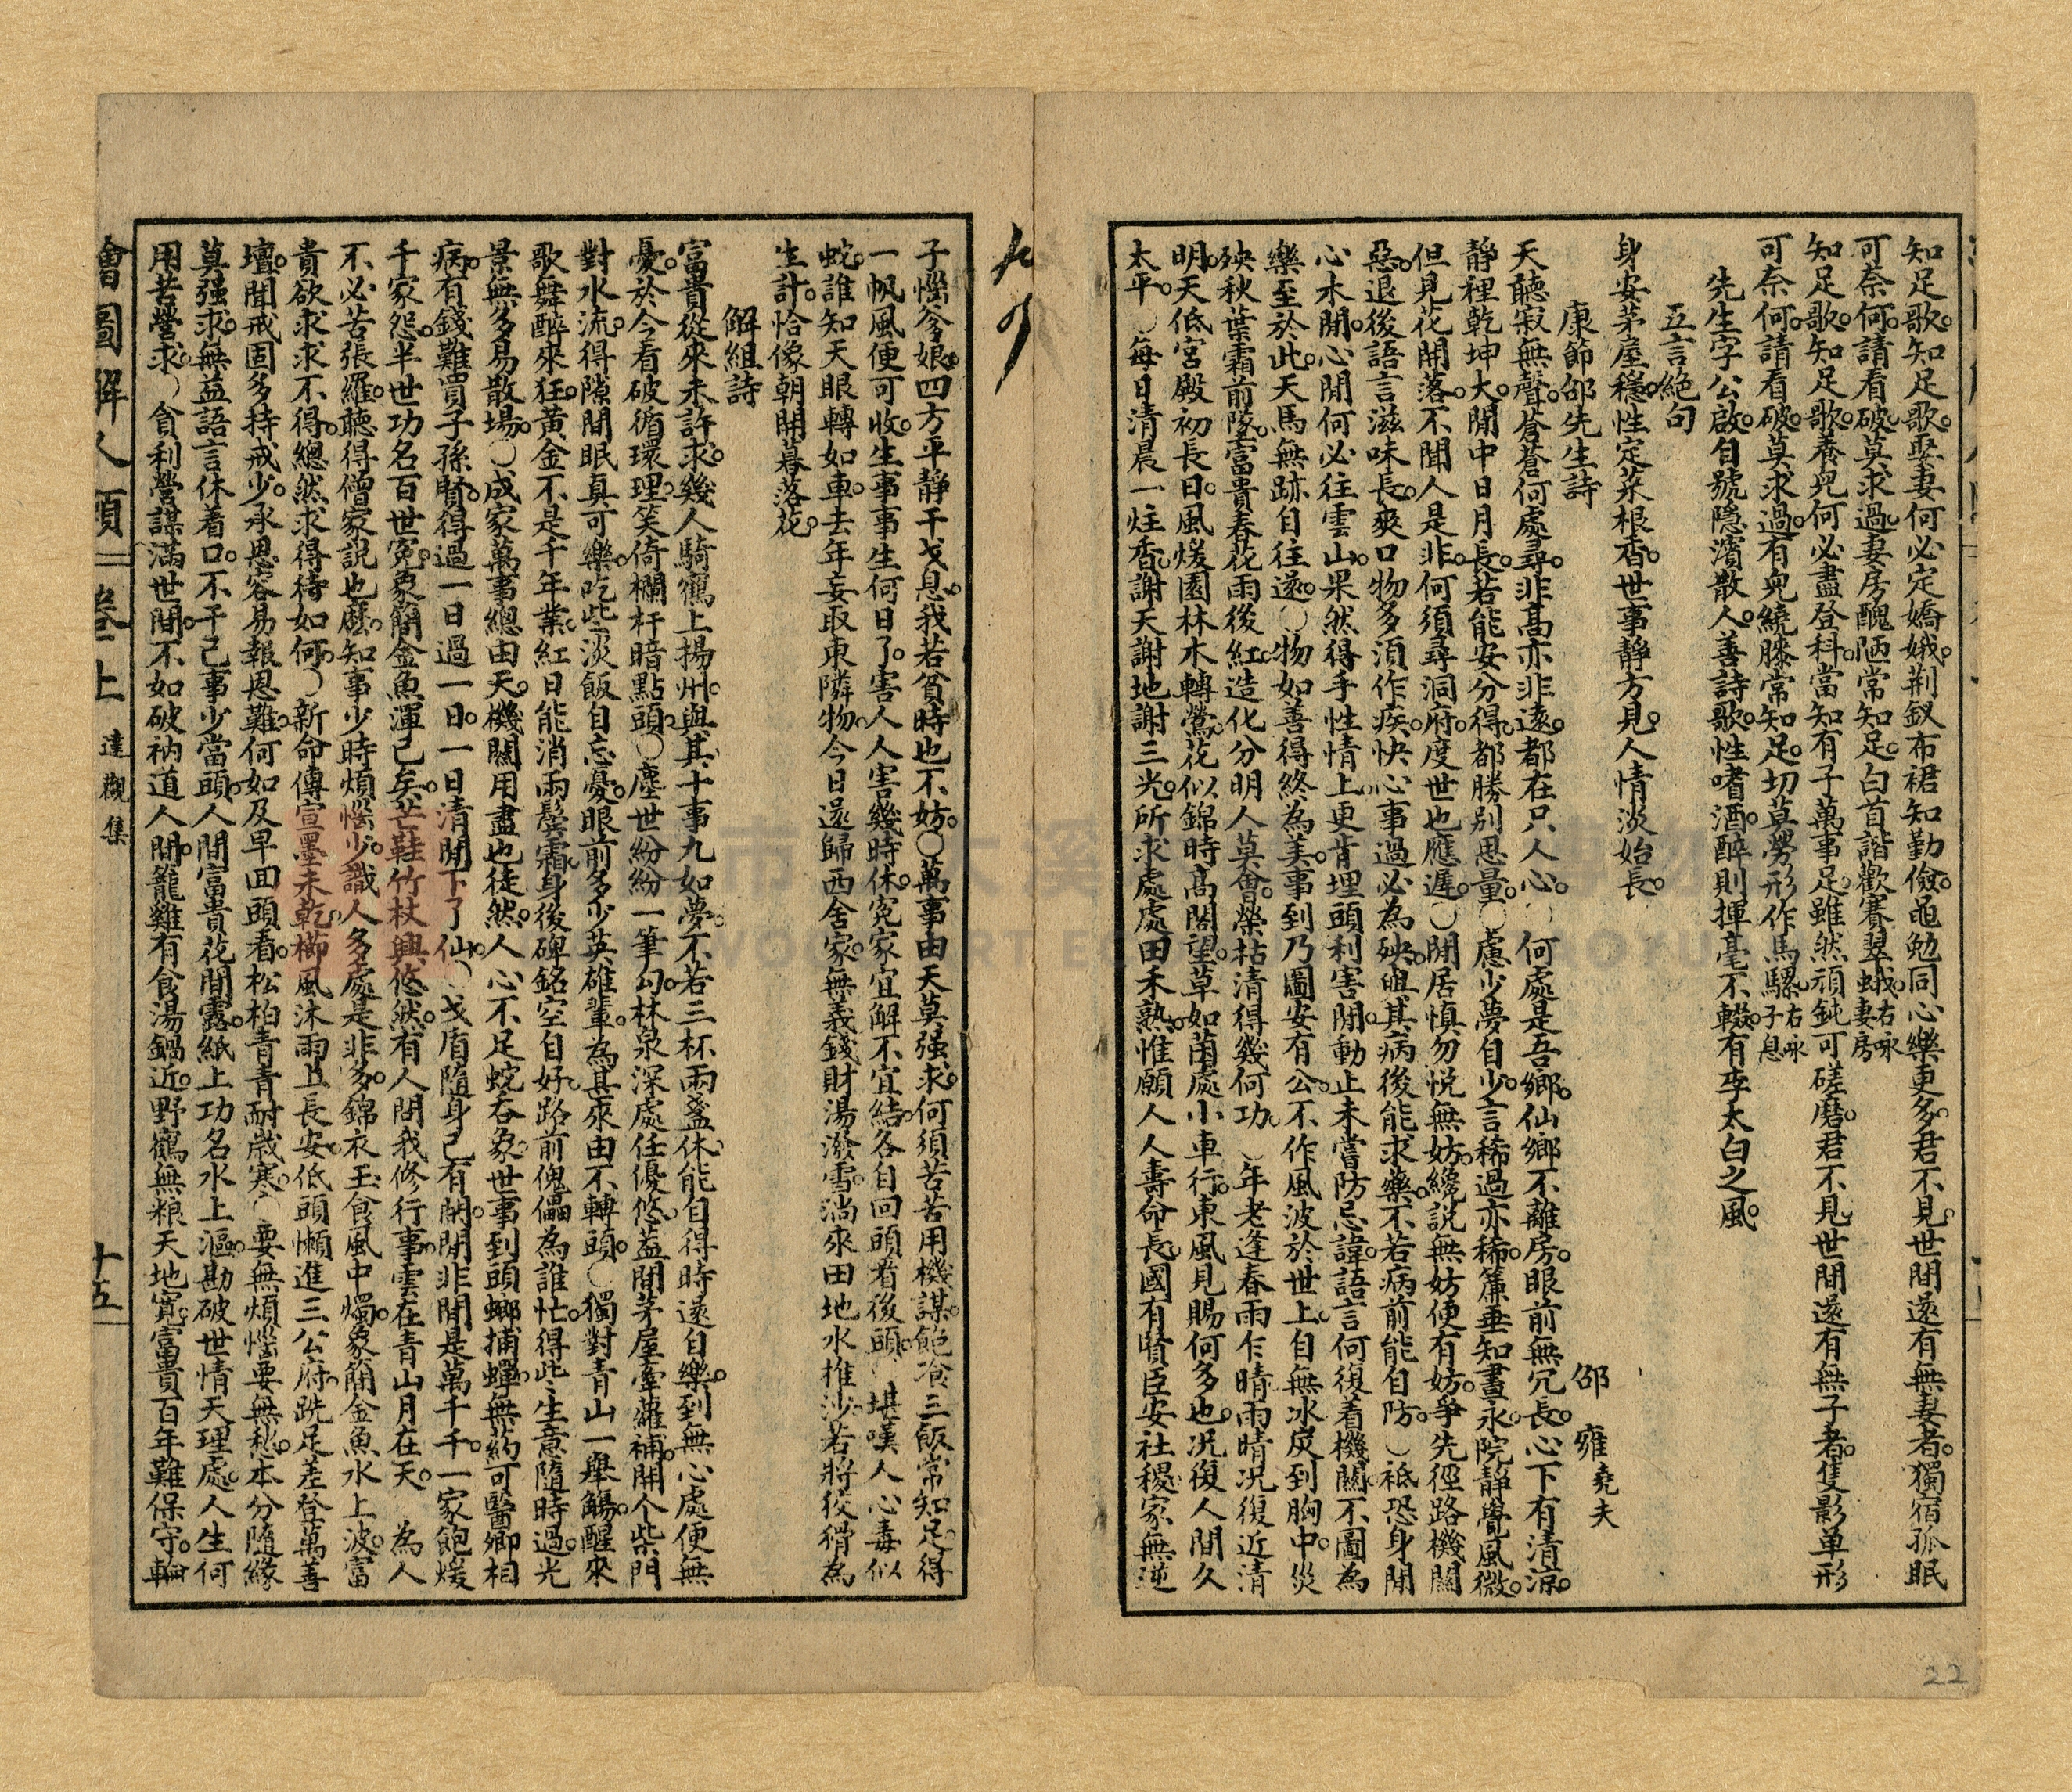 知足歌。知足歌。娶妻何必定嬌娥。荆釵布裙知勤儉。黽勉同心樂更多。君不見。世間還有無妻者。獨宿孤眠
可奈何。請看破。莫求過。妻房醜陋常知足。白首諧歡賽翠蛾。右咏妻房
知足歌。知足歌。養兒何必盡登科。當知有子萬事足。雖然頑鈍可磋磨。君不見。世間還有無子者。隻影单形
可奈何。請看破。莫求過。有兒繞膝常知足。切莫勞形作馬騾。右咏子息
先生字公啟。自號隱濱散人。善詩歌。性嗜酒。醉則揮毫不輟。有李太白之風。
五言絕句
身安茅屋穩。性定菜根香。世事静方見。人情淡始長。
康節邵先生詩 邵雍堯夫
天聽寂無聲。蒼蒼何處尋。非高亦非遠。都在只人心。〇何處是吾鄉。仙鄉不離房。眼前無冗長。心下有清涼。
静裡乾坤大。閒中日月長。若能安分得。都勝别思量。〇慮少夢自少。言稀過亦稀。簾垂知晝永。院静覺風微。
但見花開落。不聞人是非。何須尋洞府。度世也應遲。〇閒居慎勿悦無妨。纔説無妨便有妨。爭先徑路機關
惡。退後語言滋味長。爽口物多須作疾。快心事過必為殃。與其病後能求藥。不若病前能自防。〇祇恐身閒
心未閒。心閒何必往雲山。果然得手性情上。更肯埋頭利害間。動止未嘗防忌諱。語言何復着機關。不圖為
樂至於此。天馬無跡自往還。〇物如善得終為美。事到乃圖安有公。不作風波於世上。自無冰炭到胸中。災
殃秋葉霜前墜。富貴春花雨後紅。造化分明人莫會。榮枯清得幾何功。〇年老逢春雨乍晴。雨晴况復近清
明。天低宮殿初長日。風煖園林未轉鶯。花似錦時高閣望。草如茵處小車行。東風見賜何多也。况復人間久
太平。〇每日清晨一炷香。謝天謝地謝三光。所求處處田禾熟。惟願人人壽命長。國有賢臣安社稷。家無逆
子惱爹娘。四方平静干戈息。我若貧時也不妨。〇萬事由天莫强求。何須苦苦用機謀。飽飡三飯常知足。得
一帆風便可收。生事事生何日了。害人人害幾時休。冤家宜解不宜結。各自回頭看後頭。〇堪嘆人心毒似
蛇。誰知天眼轉如車。去年妄取東隣物。今日還歸西舍家。無義錢財湯潑雪。淌來田地水推沙。若將狡猾為
生計。恰像朝開暮落花。
解組詩
富貴從來未許求。幾人騎鶴上揚州。與其十事九如夢。不若三杯兩盞休。能自得時還自樂。到無心處便無
憂。於今看破循環理。笑倚欄杆暗點頭。〇塵世紛紛一筆勾。林泉深處任優悠。蓋間茅屋牽蘿補。開个柴門
對水流。得隙閒眠真可樂。吃些淡飯自忘憂。眼前多少英雄輩。為甚來由不轉頭。〇獨對青山一舉觴。醒來
歌舞醉來狂。黄金不是千年業。紅日能消兩鬓霜。身後碑銘空自好。路前傀儡為誰忙。得些生意隨時過。光
景無多易散場。〇成家萬事總由天。機關用盡也徒然。人心不足蛇吞象。世事到頭螂捕蟬。無药可醫卿相
病。有錢難買子孫賢。得過一日過一日。一日清閒下了仙。〇戈盾隨身已有閒。閒非閒是萬千千。一家飽煖
千家怨。半世功名百世冤。象簡金魚渾已矣。芒鞋竹杖興悠然。有人問我修行事。雲在青山月在天。為人
不必苦張羅。聽得僧家說也麽。知事少時煩惱少。識人多處是非多。錦衣玉食風中燭。象簡金魚水上波。富
貴欲求求不得。總然求得待如何。〇新命傳宣墨未乾。櫛風沐雨且長安。低頭懶進三公府。跣足羞登萬善
壇。聞戒固多持戒少。承恩容易報恩難。何如及早回頭看。松柏青青耐歲寒。〇要無煩惱要無愁。本分隨緣
莫强求。無益語言休着口。不干己事少當頭。人間富貴花間露。紙上功名水上漚。勘破世情天理處。人生何
用苦營求。〇貪利營謀滿世間。不如破衲道人閒。籠雞有食湯鍋近。野鶴無粮天地寛。富貴百年難保守。輪
繪圖解人頤 卷上 達觀集 十五
22